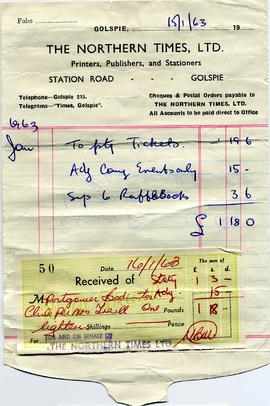 Folio
GOLSPIE, 15/1/63 19
THE NORTHERN TIMES, LTD.
Printers, Publishers, and Stationers
STATION ROAD - - - GOLSPIE
Telephone—Golspie 215.
Telegrams—"Times, Golspie".
Cheques & Postal Orders payable to
THE NORTHERN TIMES, LTD.
All Accounts to be paid direct to Office
1963
Jan To ptg Tickets. 19 6
Adv Coming Events only 15 -
Sup 6 Raffle Books 3 6
£ 1 18 0
50 Date 16/1/63 The sum of
Received of £ s. d.
1 3 -
M Adv. 15 -
One Pounds 1 18 -
Eighteen Shillings Pence
For FOR AND ON BEHALF OF
THE NORTHERN TIMES LTD.